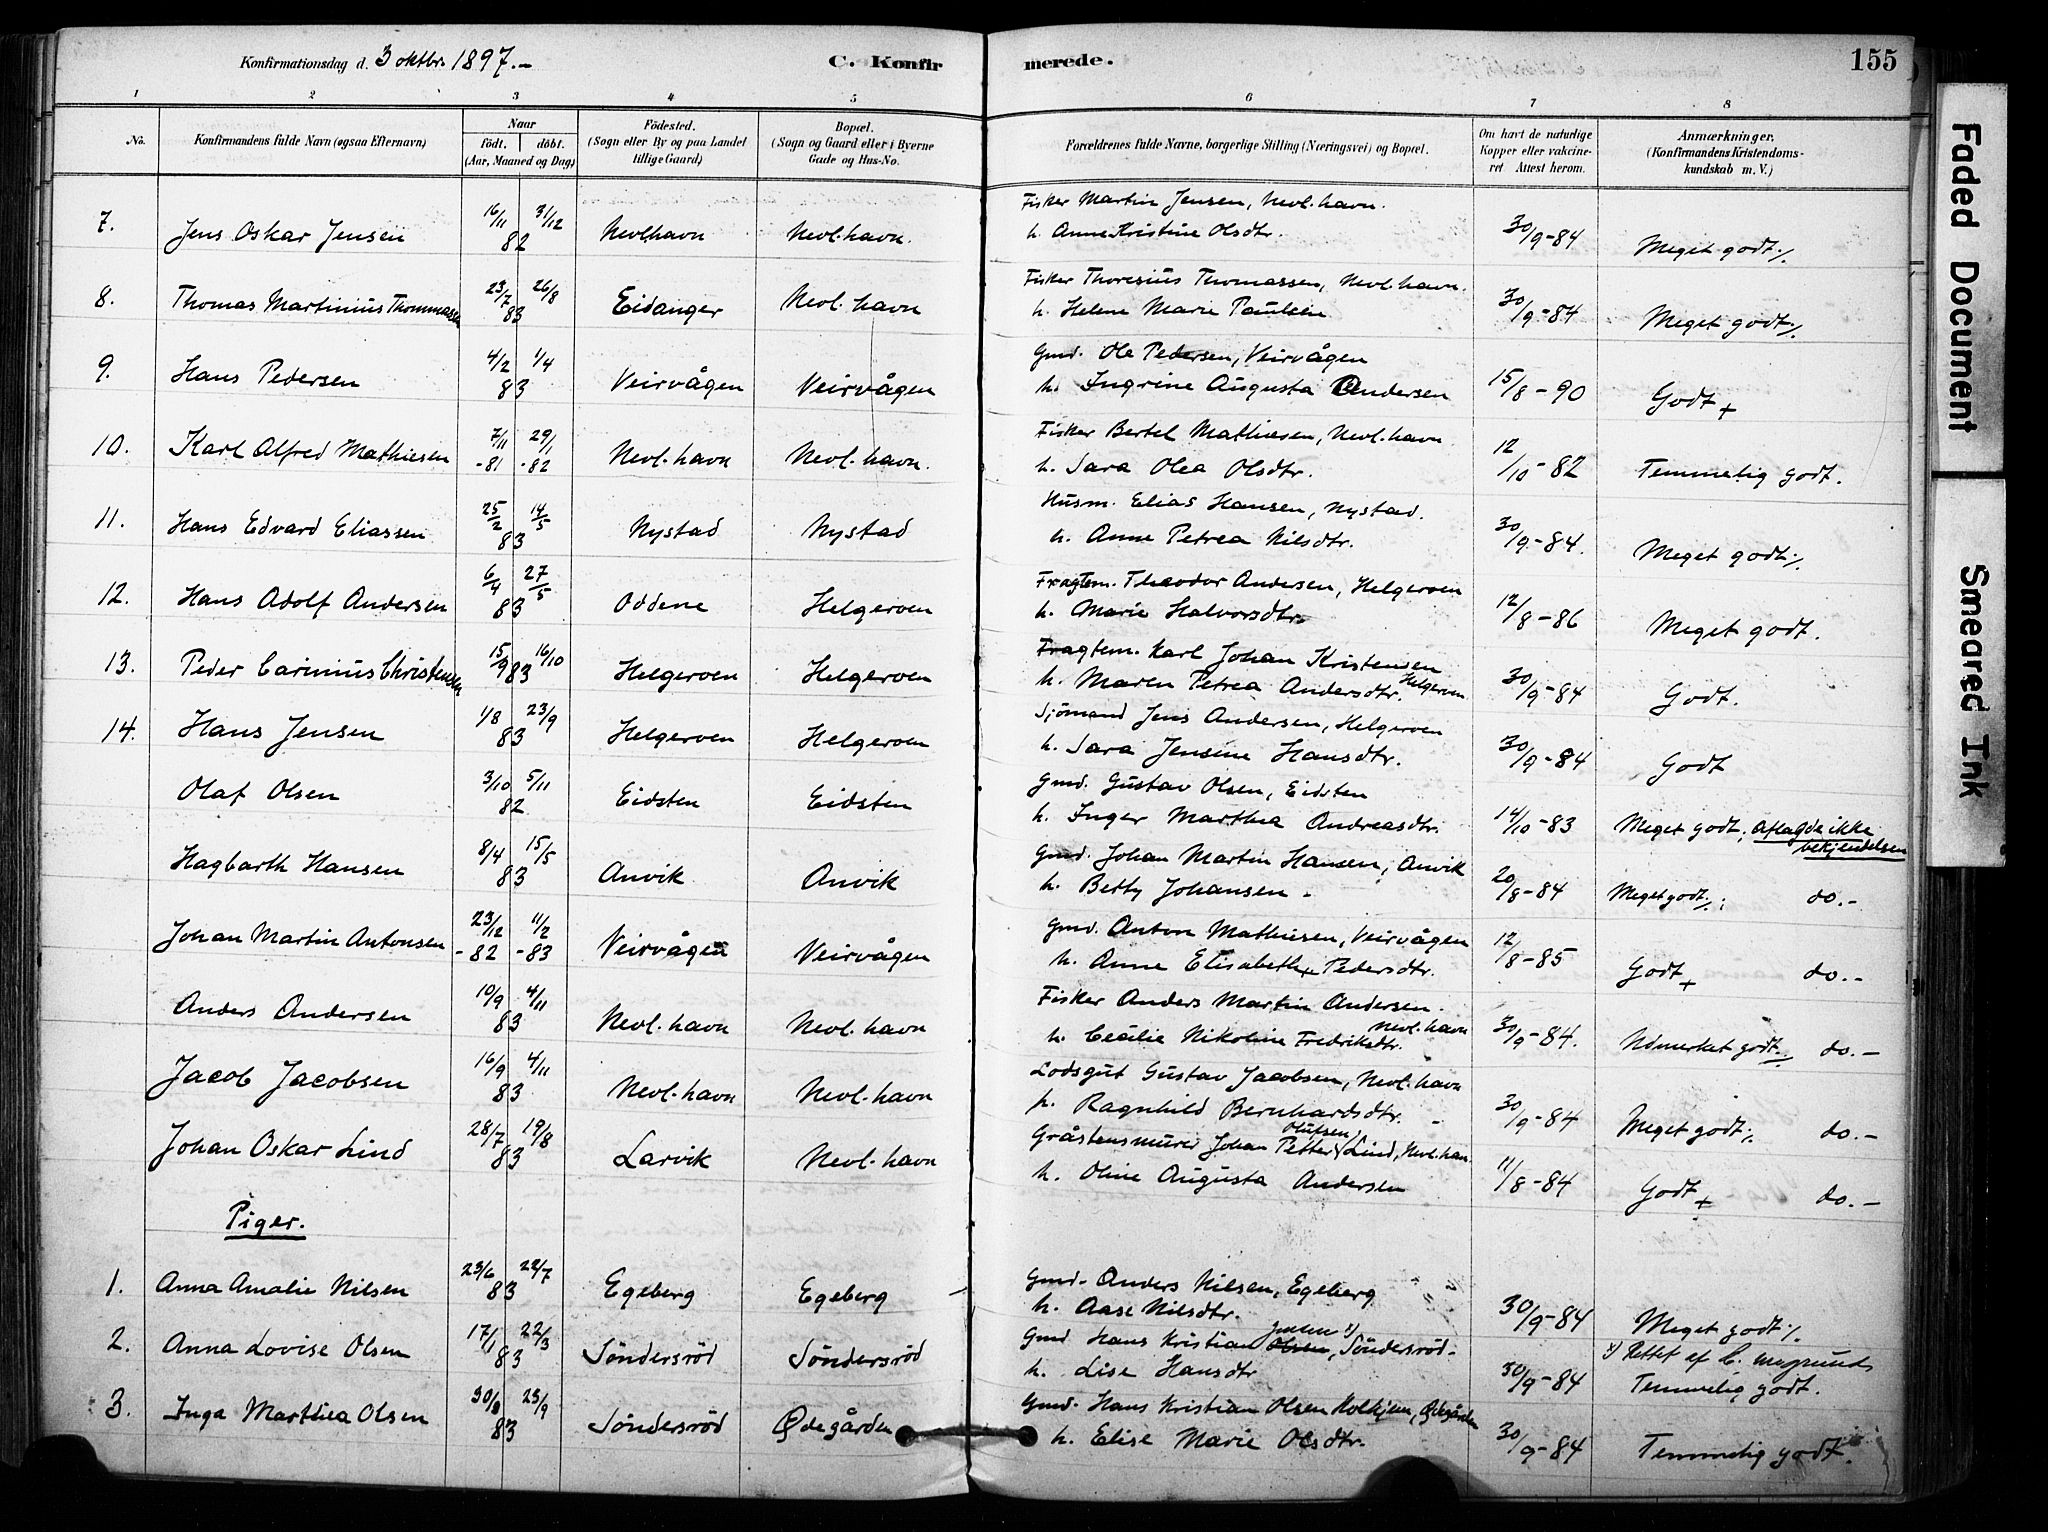 Konfirmationsdag d. 3 oktbr. 1897.-
C. Konfirmerede.
155
1 2 3 4 5 6 7 8
No.
Konfirmandens fulde Navn (ogsaa Efternavn)
Naar
födt. döbt.
(Aar, Maaned og Dag)
Födested.
(Sogn eller By og paa Landet
tillige Gaard)
Bopæl.
(Sogn og Gaard eller i Byerne
Gade og Hus-No.
Forældrenes fulde Navne, borgerlige Stilling (Næringsvei) og Bopæl.
Om havt de naturlige
Kopper eller vakcine-
ret Attest herom.
Anmærkninger.
(Konfirmandens Kristendoms-
kundskab m. V.)
7. Jens Oskar Jensen 16/11 31/12 82 Nevl.havn Nevl.havn. Fisker Martin Jensen, Nevl.havn.
h. Anne Kristine Olsdtr. 30/9-84 Meget godt./.
8. Thomas Martinius Thommassen 23/7 26/8 83 Eidanger Nevl.havn Fisker Thoresius Thomassen, Nevl.havn.
h. Helene Marie Paulsen 30/9-84 Meget godt./.
9. Hans Pedersen 4/2 1/4 83 Veirvågen Veirvågen Gmd. Ole Pedersen, Veirvågen
h. Ingrine Augusta Andersen 15/8-90 Godt +
10. Karl Alfred Mathiesen 7/11 -81 29/1 -82 Nevl.havn Nevl.havn. Fisker Bertel Mathiesen, Nevl.havn
h. Sara Olea Olsdtr. 12/10-82 Temmelig godt.
11. Hans Edvard Eliassen 25/2 14/5 83 Nystad Nystad Husm. Elias Hansen, Nystad.
h. Anne Petrea Nilsdtr. 30/9-84. Meget godt./.
12. Hans Adolf Andersen 6/4 27/5 83 Oddene Helgeroen Fragtem. Theodor Andersen, Helgeroen
h. Marie Halvorsdtr. 12/8-86 Meget godt.
13. Peder Carinius Christensen 15/9 16/10 83 Helgeroen Helgeroen Fragtem. Karl Johan Kristensen
h. Maren Petrea Andersdtr. Helgeroen 30/9-84 Godt.
14. Hans Jensen 1/8 23/9 83 Helgeroen Helgeroen Sjömand Jens Andersen, Helgeroen
h. Sara Jensine Hansdtr. 30/9-84 Godt
Olaf Olsen 3/10 5/11 82 Eidsten Eidsten Gmd. Gustav Olsen, Eidsten
h. Inger Marthea Andreasdtr. 14/10-83 Meget godt; aflagde ikke
bekjendelsen
Hagbarth Hansen 8/4 15/5 83 Anvik Anvik Gmd. Johan Martin Hansen, Anvik
h. Betty Johansen. 20/8-84 Meget godt./.; do.-
Johan Martin Antonsen 23/12 -82 11/2 -83 Veirvågen Veirvågen Gmd. Anton Mathiesen, Veirvågen
h. Anne Elisabeth Pedersdtr. 12/8-85 Godt + do.-
Anders Andersen 10/9 4/11 83 Nevl.havn Nevl.havn Fisker Anders Martin Andersen.
h. Cecilie Nikoline Fredriksdtr. Nevl.havn 30/9-84. Udmerket godt./. do.-
Jacob Jacobsen 16/9 4/11 83 Nevl.havn Nevl.havn Lodsgut Gustav Jacobsen, Nevl.havn
h. Ragnhild Bernhardsdtr. 30/9-84 Meget godt./. do.-
Johan Oskar Lind 28/7 19/8 83 Larvik Nevl.havn Gråstensmurer Johan Petter Olufsen Lind, Nevl.han.
h. Oline Augusta Andersen 11/8-84 Godt + do.-
Piger.
1. Anna Amalie Nilsen 23/6 22/7 83 Egeberg Egeberg Gmd. Anders Nilsen, Egeberg
h. Aase Nilsdtr. 30/9-84 Meget godt./.
2. Anna Lovise Olsen 17/1 22/3 83 Söndersröd Söndersröd Gmd Hans Kristian Olsen, Söndersröd.
h. Lise Hansdtr 30/9-84 Temmelig godt.
3. Inga Marthea Olsen 30/8 23/9 83 Söndersröd Ødegården Gmd. Hans Kristian Olsen Holkjen, Ødegården
h. Elise Marie Olsdtr. 30/9-84 Temmelig godt.
Faded Document
Smeared Ink